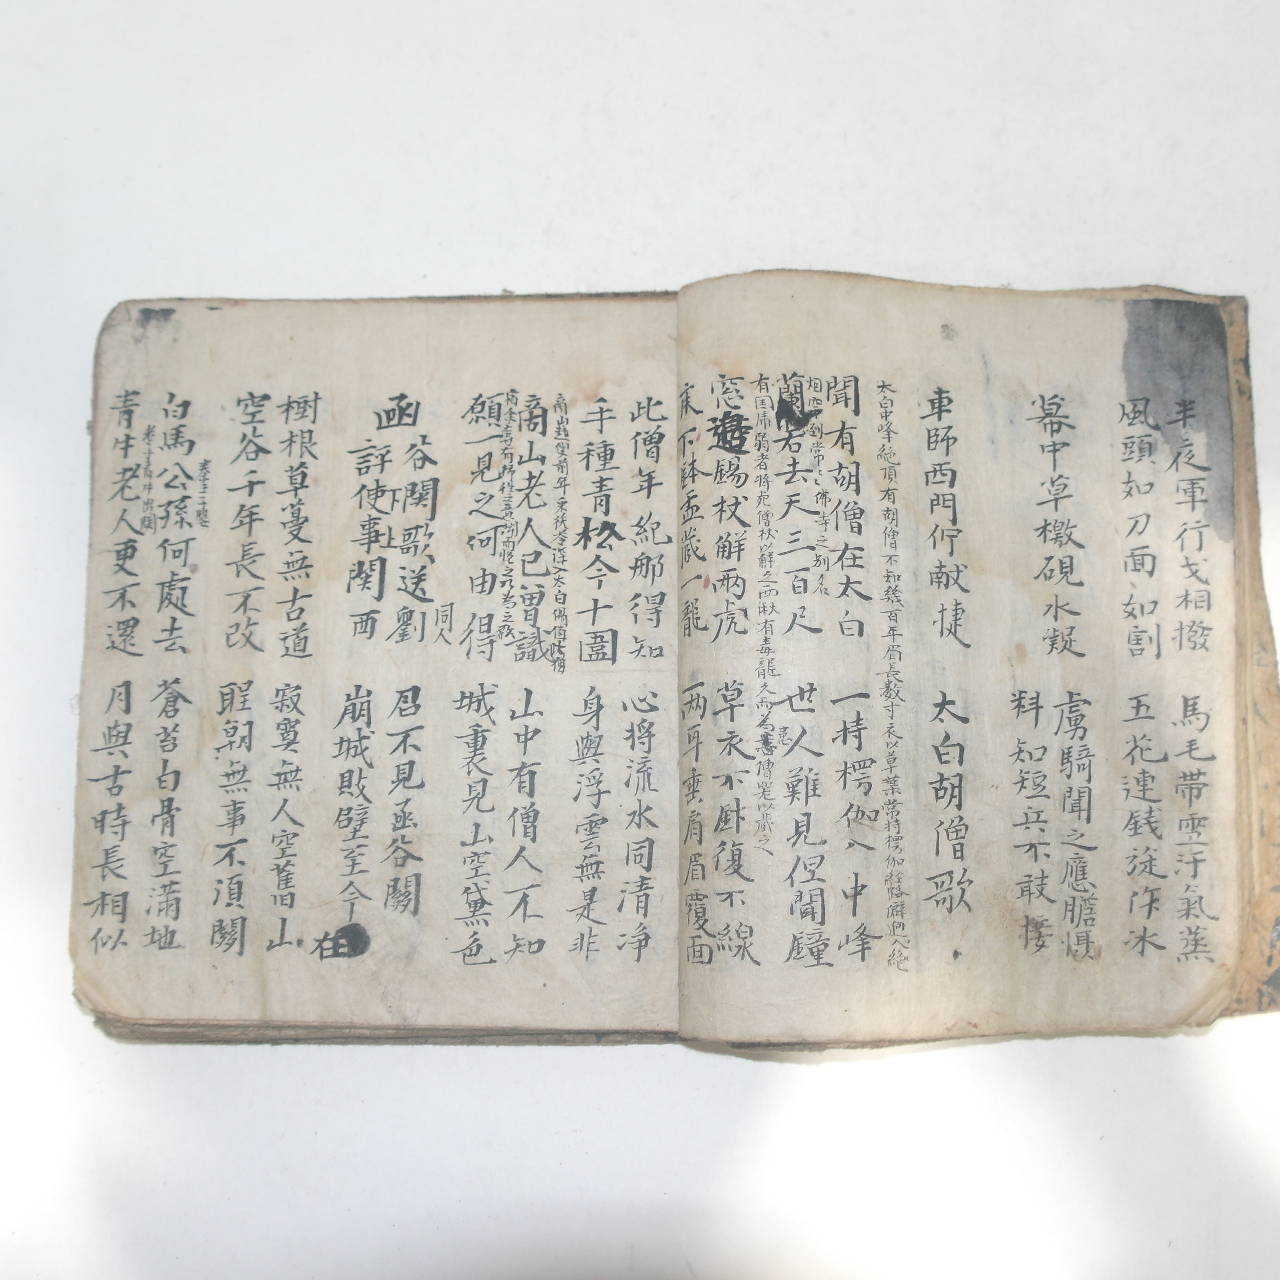 半夜軍行戈相撥 馬毛帶雪汗氣蒸
風頭如刀面如割 五花連錢旋作冰
幕中草檄硯水凝 虜騎聞之應膽慴
料知短兵不敢接
車師西門佇献捷 太白胡僧歌
太白中峰絶頂有胡僧不知幾百年眉長数寸衣以草葉常持楞伽経
聞有胡僧在太白 一持楞伽入中峰
蘭若去天三百尺 世人難見但聞鐘
窓邉錫杖解兩虎 草衣不針復不線
床下鉢盂藏一龍 兩耳垂肩眉覆面
此僧年紀那得知 心將流水同清净
手種青松今十圍 身與浮雲無是非
商山老人已曽識 山中有僧人不知
願一見之何由得 城裏見山空黛色
同人
函谷関歌送劉
評使事関西 君不見函谷關
崩城敗壁至今在
樹根草蔓無古道 寂寞無人空舊山
空谷千年長不改 聖朝無事不須關
白馬公孫何處去 蒼苔白骨空滿地
青牛老人更不還 月與古時長相似